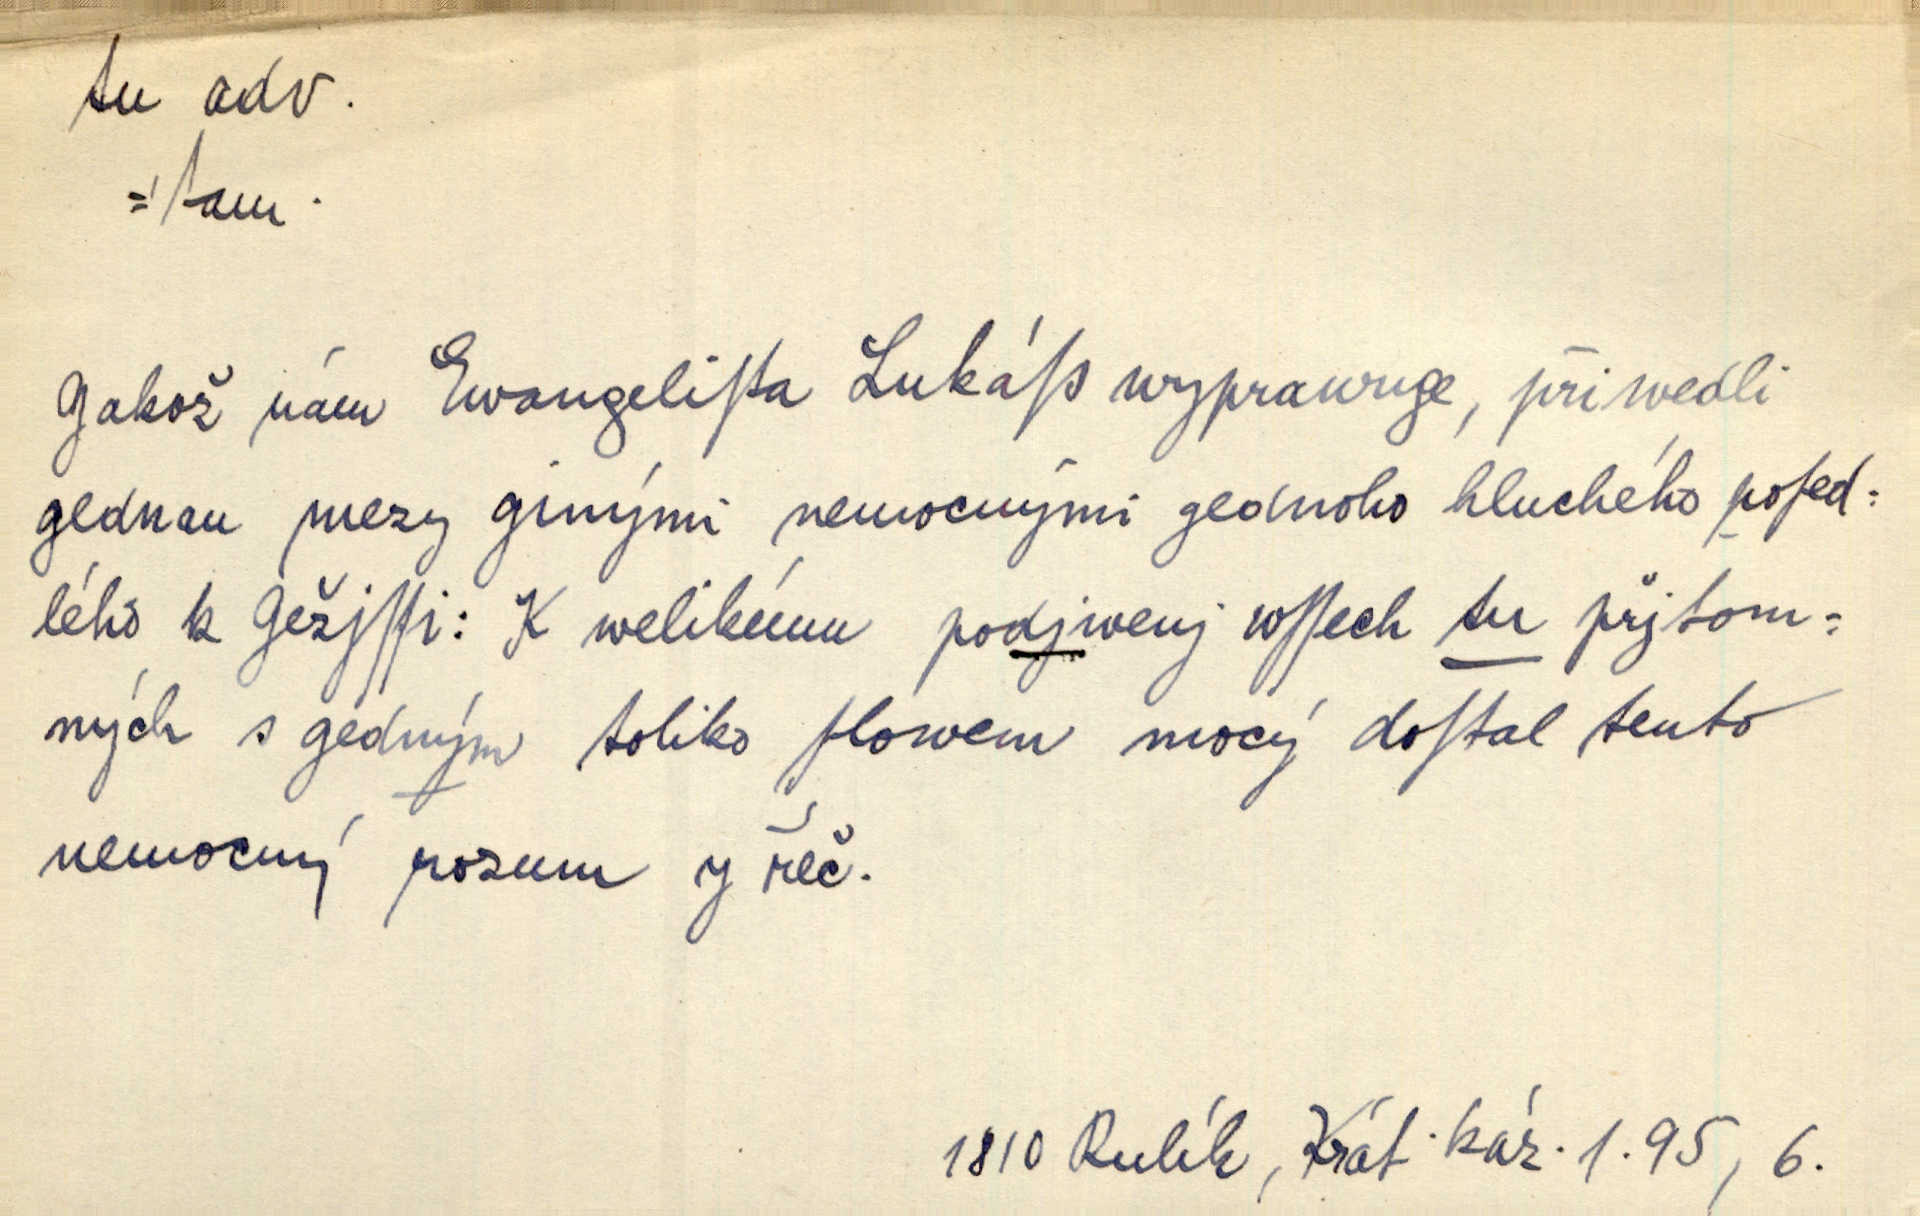 tu adv.
= tam.
Gakož nám Ewangeliſta Lukáſs wyprawuge, přiwedli
gednau mezy ginými nemocnými gednoho hluchého poſed=
lého k Gežjſſi: K welikému podjwenj wſſech tu přjtom=
ných s gedným toliko ſlowem mocý doſtal tento
nemocný rozum y řeč.
1810 Rulík, Krát. káz. 1.95, 6.